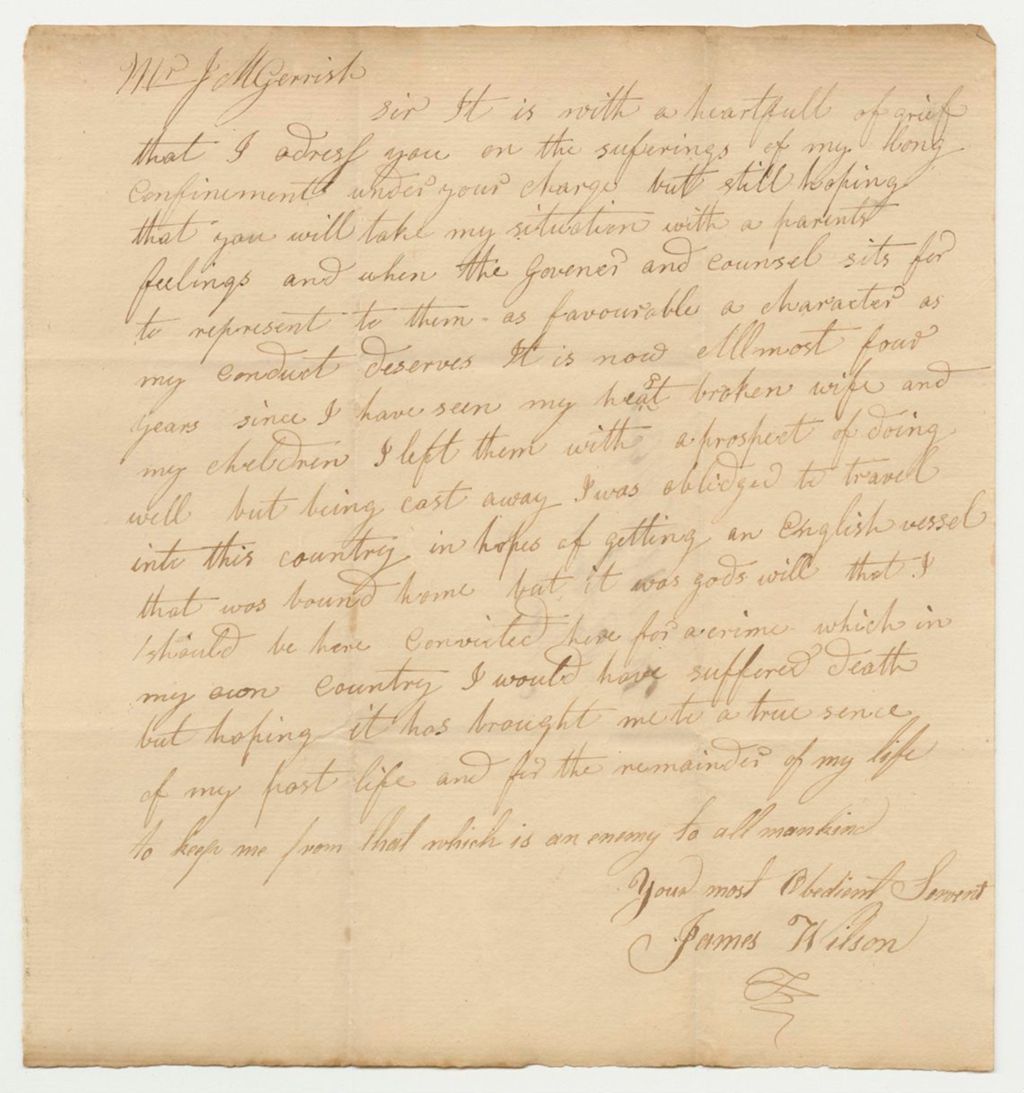 Mr J M Gerrish
Sir It is with a heartfull of grief
that I adress you on the suferings of my long
Confinement under your charge but still hoping
that you will take my situation with a parents
feelings and when the Govener and counsel sits for
to represent to them as favourable a character as
my conduct deserves It is now Allmost four
years since I have seen my heart broken wife and
my children I left them with a prospect of doing
well but being cast away I was oblidged to travel
into this country in hopes of getting an English vessel
that was bound home but it was gods will that I
should be here Convicted here for a crime which in
my own Country I would have suffered death
but hoping it has brought me to a true sence
of my past life and for the remainder of my life
to keep me from that which is an enemy to all mankind
Your most Obedient Servent
James Wilson